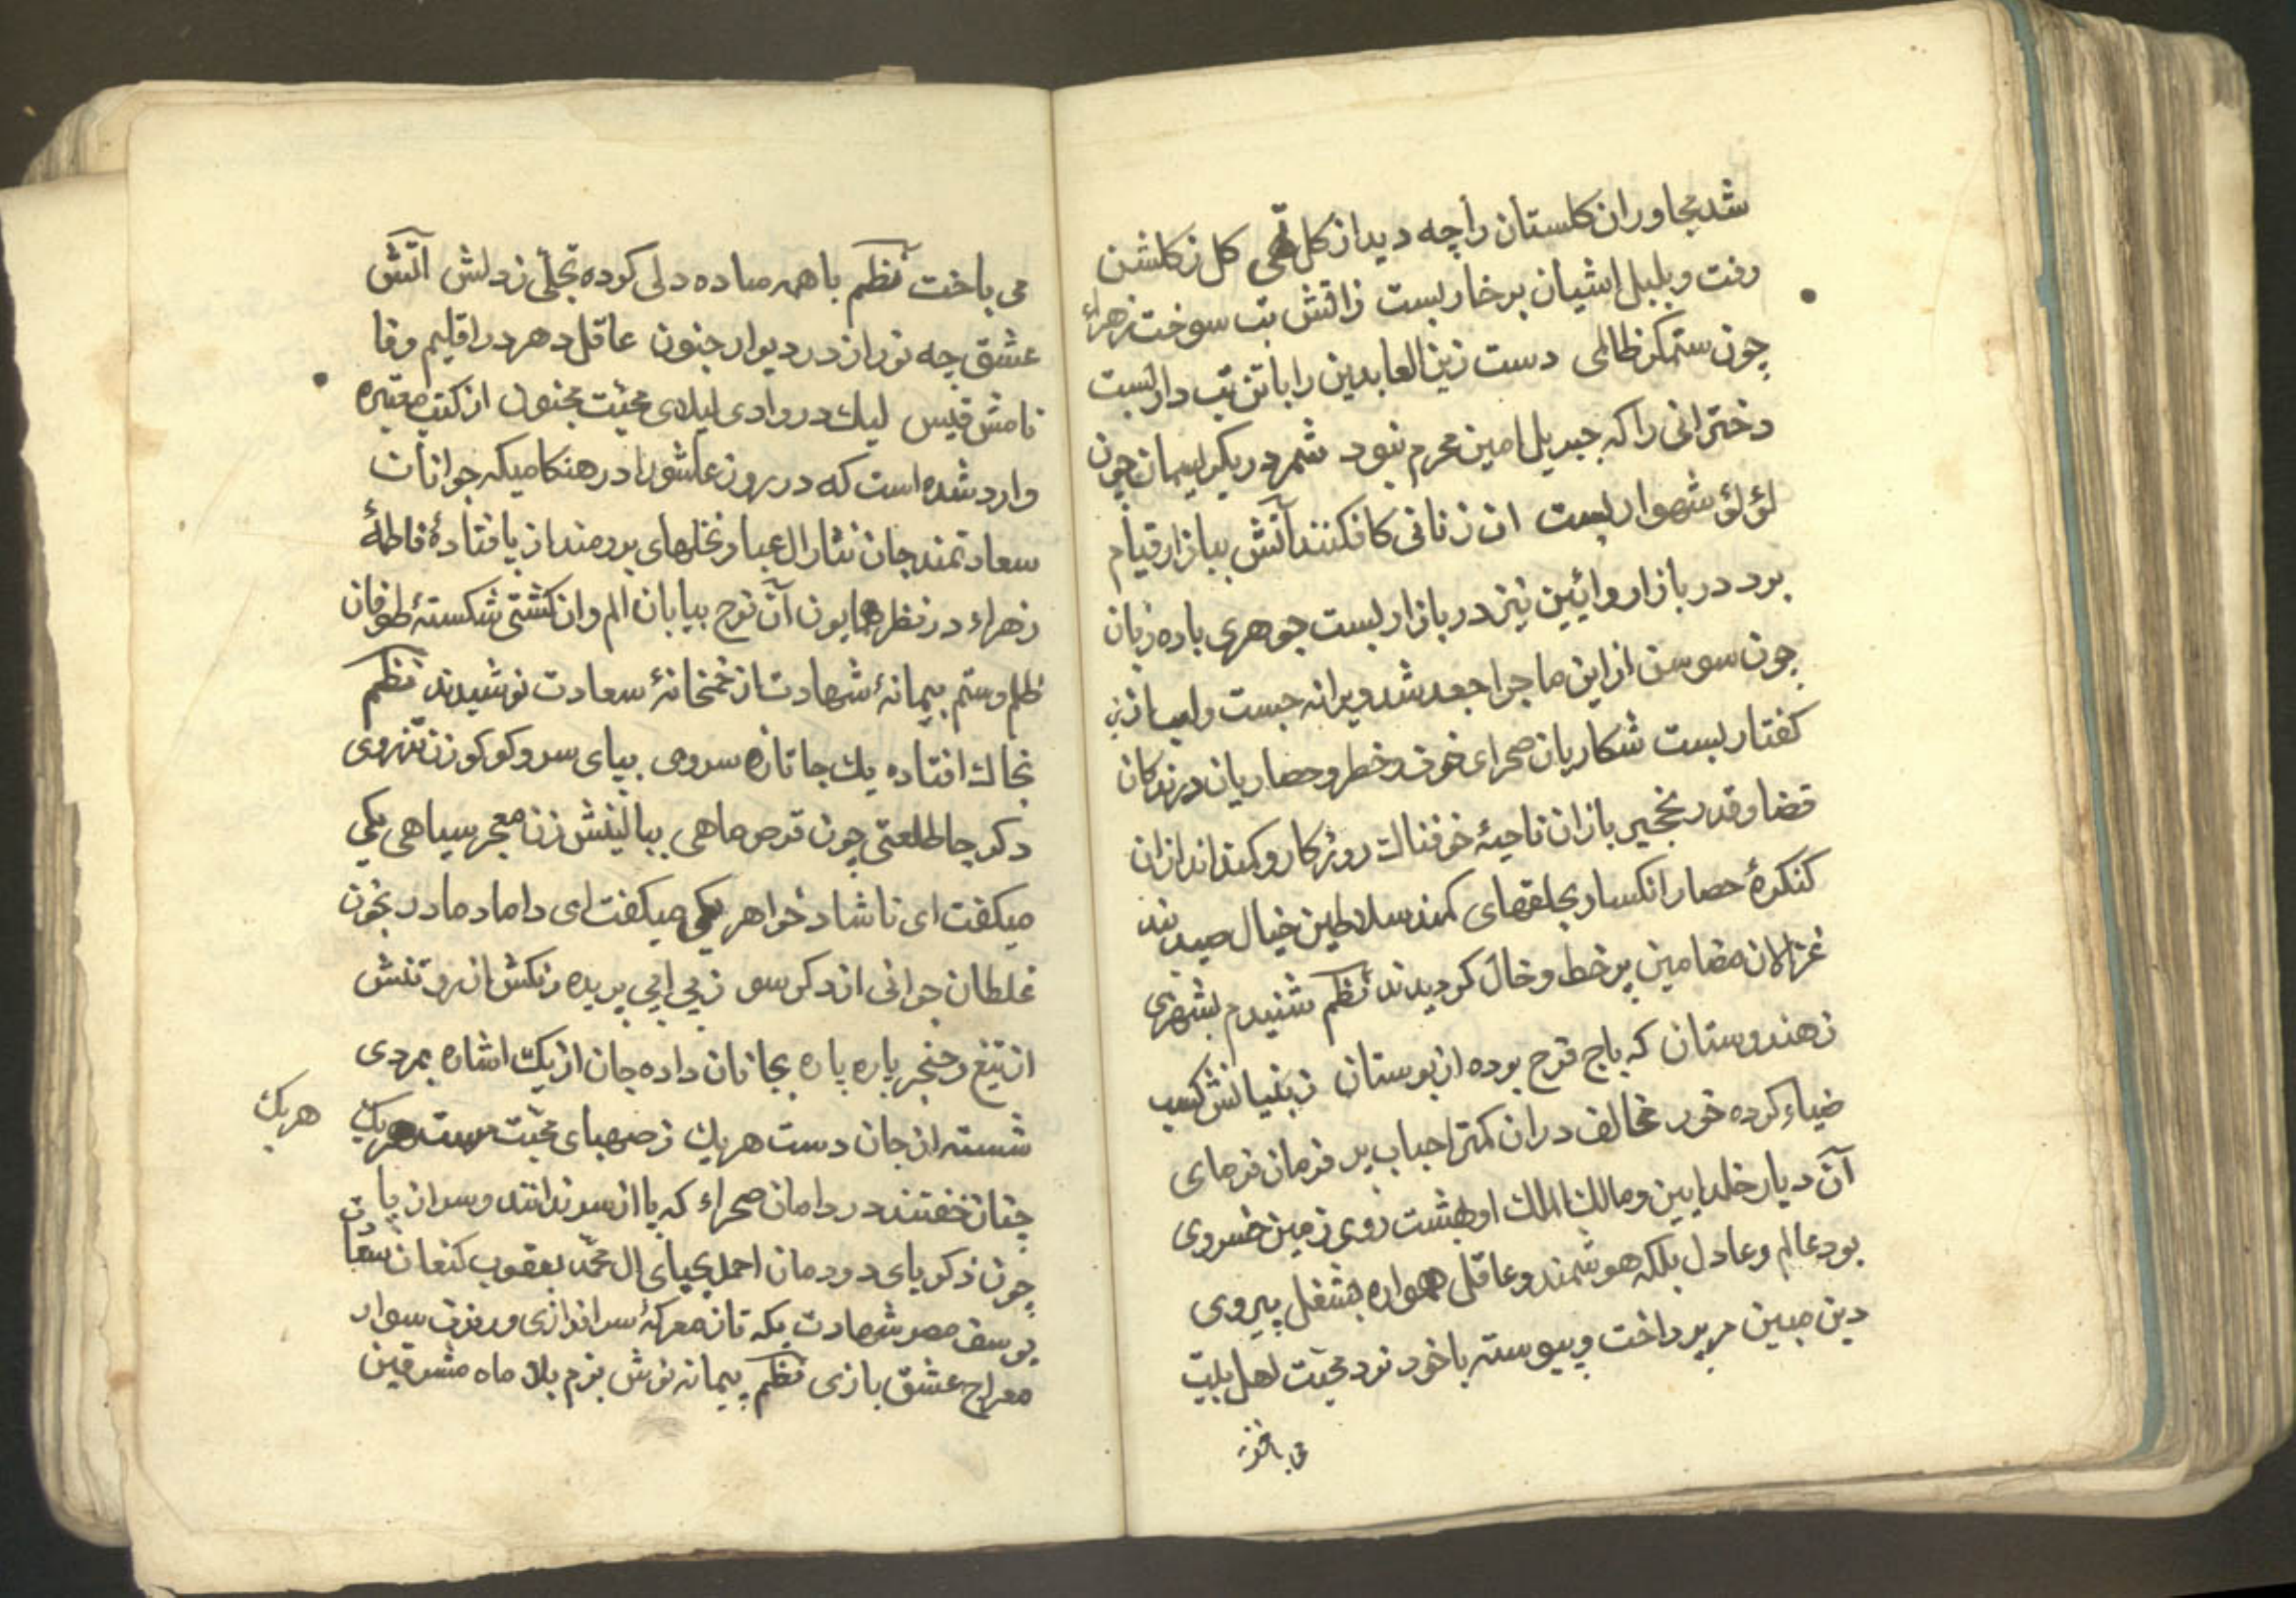 شد مجاوران کلستان را چه دید از کل تهی کل ز کلشن
رفت و بلبل اشیان بر خار بست ز اتش تب سوخت زهراء
چون ستمکر ظالمی دست زین العابدین را با تن تب دار بست
دخترانی را که جبریل امین محرم نبود شمر در یک ریسمان چون
لؤلؤ شهوار بست ان زنانی کافکنند آتش ببازار قیام
برد در بازار و ائین نیز در بازار بست جوهری باده زبان
چون سوسن از این ماجرا جعد شد ویرانه جست و لب از
کفتار بست شکاریان صحرای خوف و خطر و حصاریان در زندکان
قضا و قدر نخجیر بازان ناحیهٔ خوفناک روزکار و کمند اندازان
کنکرهٔ حصار انکسار بحلقهای کمند سلاطین خیال صید بند
غزالان مضامین پر خط و خال کردیدند نظم شنیدم بشهری
ز هندوستان که باج فرح بوده از بوستان ز بنیانش کسب
ضیاء کرده خور مخالف دران کمتر احباب پر فرمان فرمای
آن دیار خلد ایین و مالک الملک او بهشت روی زمین خسروی
بود عالم و عادل بلکه هوشمند و عاقل همواره بشغل پیروی
دین مبین می پرداخت و پیوسته با خود نرد محبّت اهل بیت
می باخت
می باخت نظم با همه ساده دلی کرده تجلّی ز دلش آتش
عشق چه نور از در دیوار جنون عاقل دهر در اقلیم وفا
نامش قیس لیک در وادی لیلای محبّت مجنون از کتب معتبره
وارد شده است که در روز عاشورا در هنکامیکه جوانان
سعادتمند جان نثار ال عبا و نخلهای برومند از پا فتادهٔ فاطمهٔ
زهراء در نظر همایون آن نوح بیابان الم و ان کشتی شکستهٔ طوفان
ظلم و ستم پیمانهٔ شهادت از خمخانهٔ سعادت نوشیدند نظم
بخاک افتاده یک جا تازه سروی بپای سرو کوکو زن تذروی
دکر جا طلعتی چون قرص ماهی ببالینش زن معجر سیاهی یکی
میکفت ای ناشاد خواهر یکی میکفت ای داماد مادر بخون
غلطان جوانی از دکر سو ز بی ابی پریده رنکش از رو تنش
از تیغ و خنجر پاره پاره بجانان داده جان از یک اشاره بمردی
شسته از جان دست هر یک ز صهبای محبّت مست هر یک
هر یک
چنان خفتند در دامان صحراء که پا از سر ندانند و سر از پا
چون زکریای دودمان احمد یحیای ال محمّد یعقوب کنعان سعادت
یوسف مصر شهادت یکه تاز معرکهٔ سرافرازی و رفرف سوار
معراج عشق بازی نظم پیمانه نوش بزم بلا ماه مشرقین